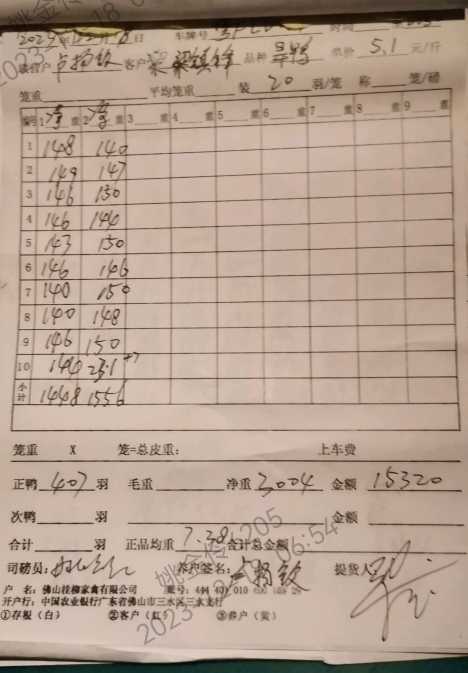 2023年12月18日 车牌号 时间
养户 卢扬钦 客户 梁镇锋 品种 单价 5.1 元/斤
笼重 平均笼重 装 20 羽/笼 称 笼/磅
编号 1 净 重 2 净 重 3 重 4 重 5 重 6 重 7 重 8 重 9 重
1 148 140
2 149 147
3 146 150
4 146 144
5 143 150
6 146 146
7 140 150
8 140 148
9 146 150
10 144 231
小计 1448 1556
笼重 X 笼=总皮重: 上车费
正鸭 407 羽 毛重 净重 3004 金额 15320
次鸭 羽 金额
合计 羽 正品均重 7.38 合计总金额
司磅员: 养户签名: 卢扬钦 提货人
户 名: 佛山桂柳家禽有限公司 账号: 444 40
开户行: 中国农业银行广东省佛山市三水区三水支行
①存根（白） ②客户（红） ③养户（黄）